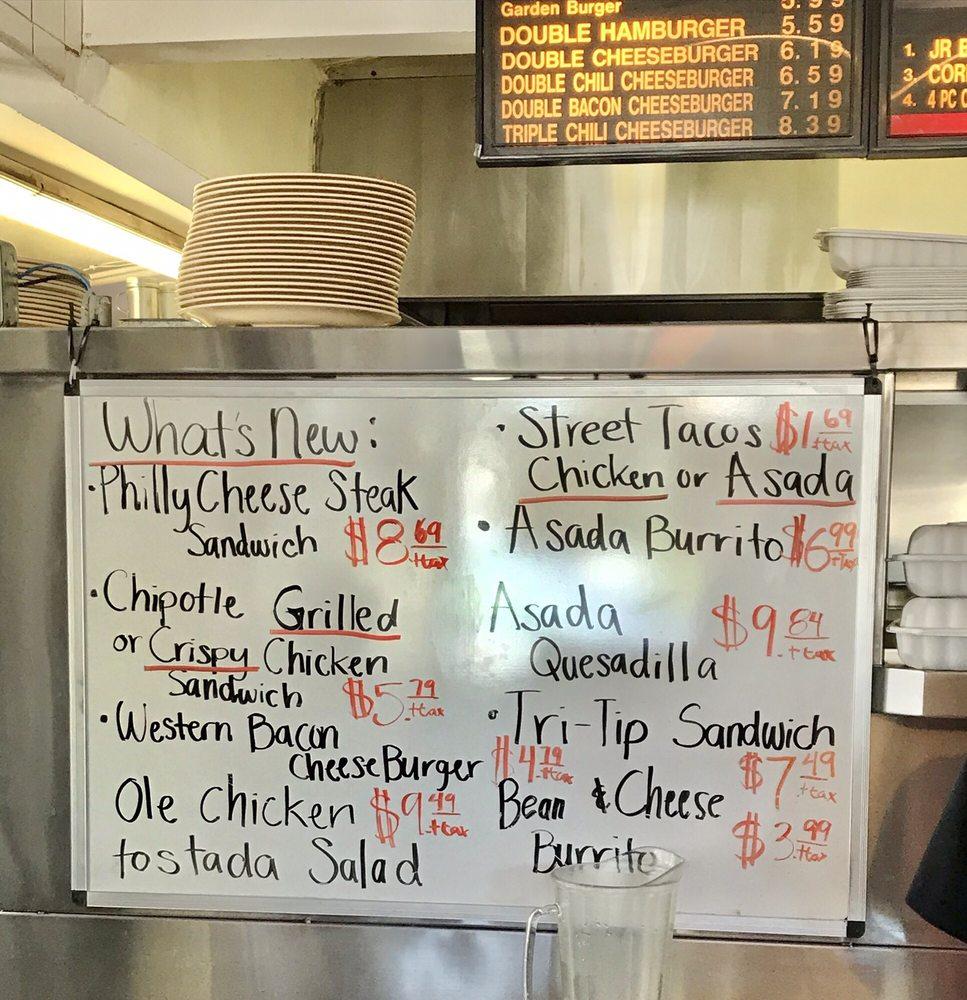 Garden Burger 5.99
DOUBLE HAMBURGER 5.59
DOUBLE CHEESEBURGER 6.19
DOUBLE CHILI CHEESEBURGER 6.59
DOUBLE BACON CHEESEBURGER 7.19
TRIPLE CHILI CHEESEBURGER 8.39
1. JR
3. COR
4. 4 PC
What's New:
·Philly Cheese Steak
Sandwich $8.69 +tax
·Chipotle Grilled
or Crispy Chicken
Sandwich $5.79 +tax
·Western Bacon
CheeseBurger $4.79 +tax
Ole Chicken $9.49 +tax
tostada Salad
·Street Tacos $1.69 +tax
Chicken or Asada
·Asada Burrito $6.99 +tax
Asada $9.84 +tax
Quesadilla
·Tri-Tip Sandwich
$7.49 +tax
Bean & Cheese
Burrito $3.99 +tax